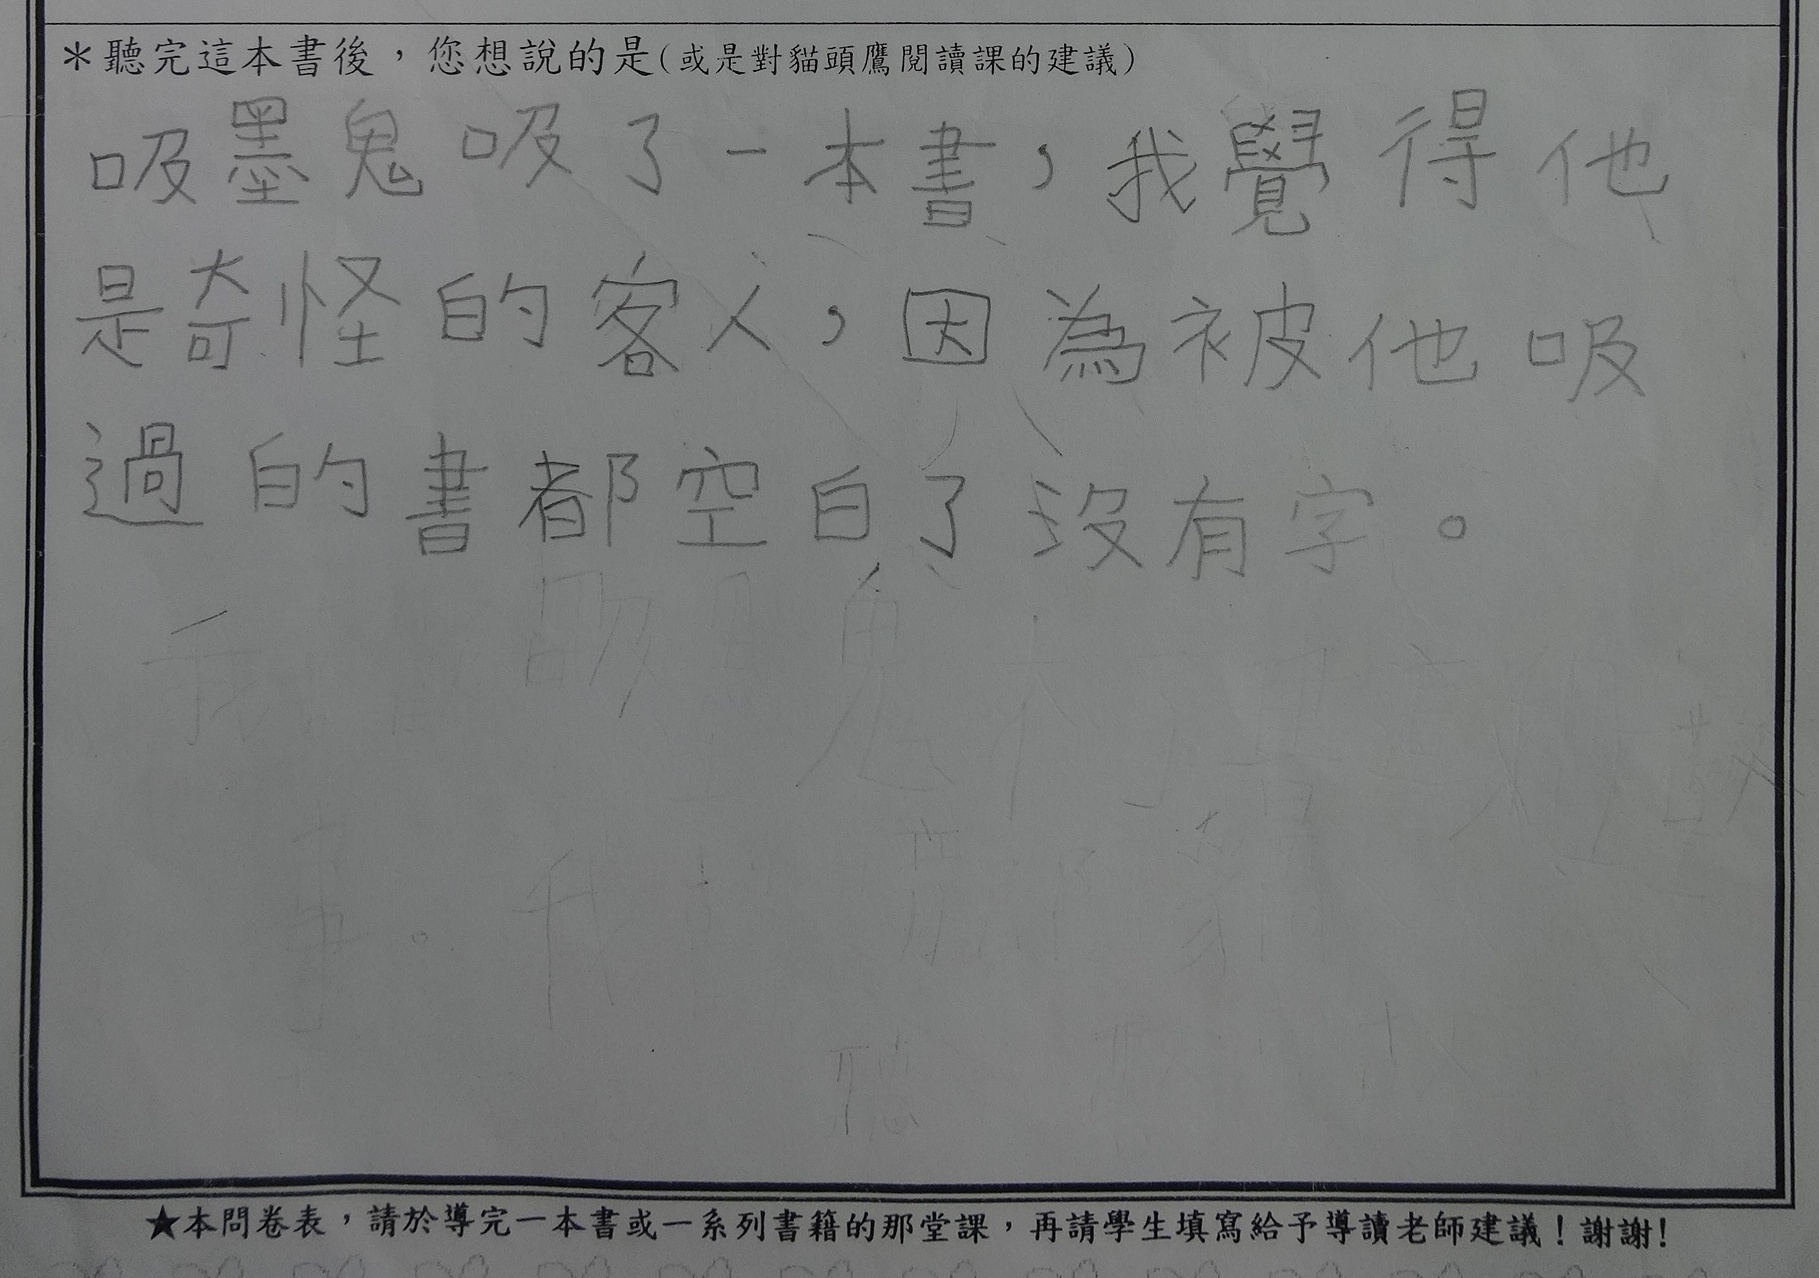 ＊聽完這本書後，您想說的是(或是對貓頭鷹閱讀課的建議)
吸墨鬼吸了一本書，我覺得他
是奇怪的客人，因為被他吸
過的書都空白了沒有字。
★本問卷表，請於導完一本書或一系列書籍的那堂課，再請學生填寫給予導讀老師建議！謝謝!